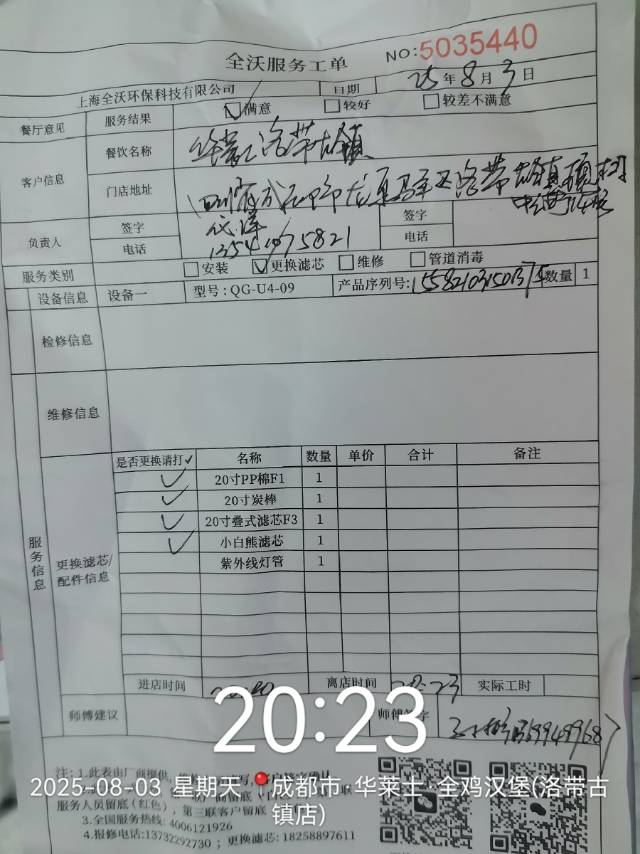 全沃服务工单
NO:5035440
上海全沃环保科技有限公司 日期 25年8月3日
餐厅意见 服务结果 满意 较好 较差不满意
客户信息 餐饮名称 华莱士洛带古镇
门店地址
负责人 签字 签字
电话 13541975821 电话
服务类别 安装 更换滤芯 维修 管道消毒
设备信息 设备一 型号:QG-U4-09 产品序列号: 数量 1
检修信息
维修信息
服务信息
更换滤芯/配件信息
是否更换请打✓ 名称 数量 单价 合计 备注
✓ 20寸PP棉F1 1
✓ 20寸炭棒 1
✓ 20寸叠式滤芯F3 1
✓ 小白熊滤芯 1
紫外线灯管 1
进店时间 离店时间 20:23 实际工时
师傅建议 师傅签字
20:23
2025-08-03 星期天 成都市·华莱士·全鸡汉堡(洛带古
镇店)
注:1.此表由厂商提供,
服务人员留底(红色),第三联客户留底
3.全国服务热线:4006121926
4.报修电话:13732292730;更换滤芯:18258897611